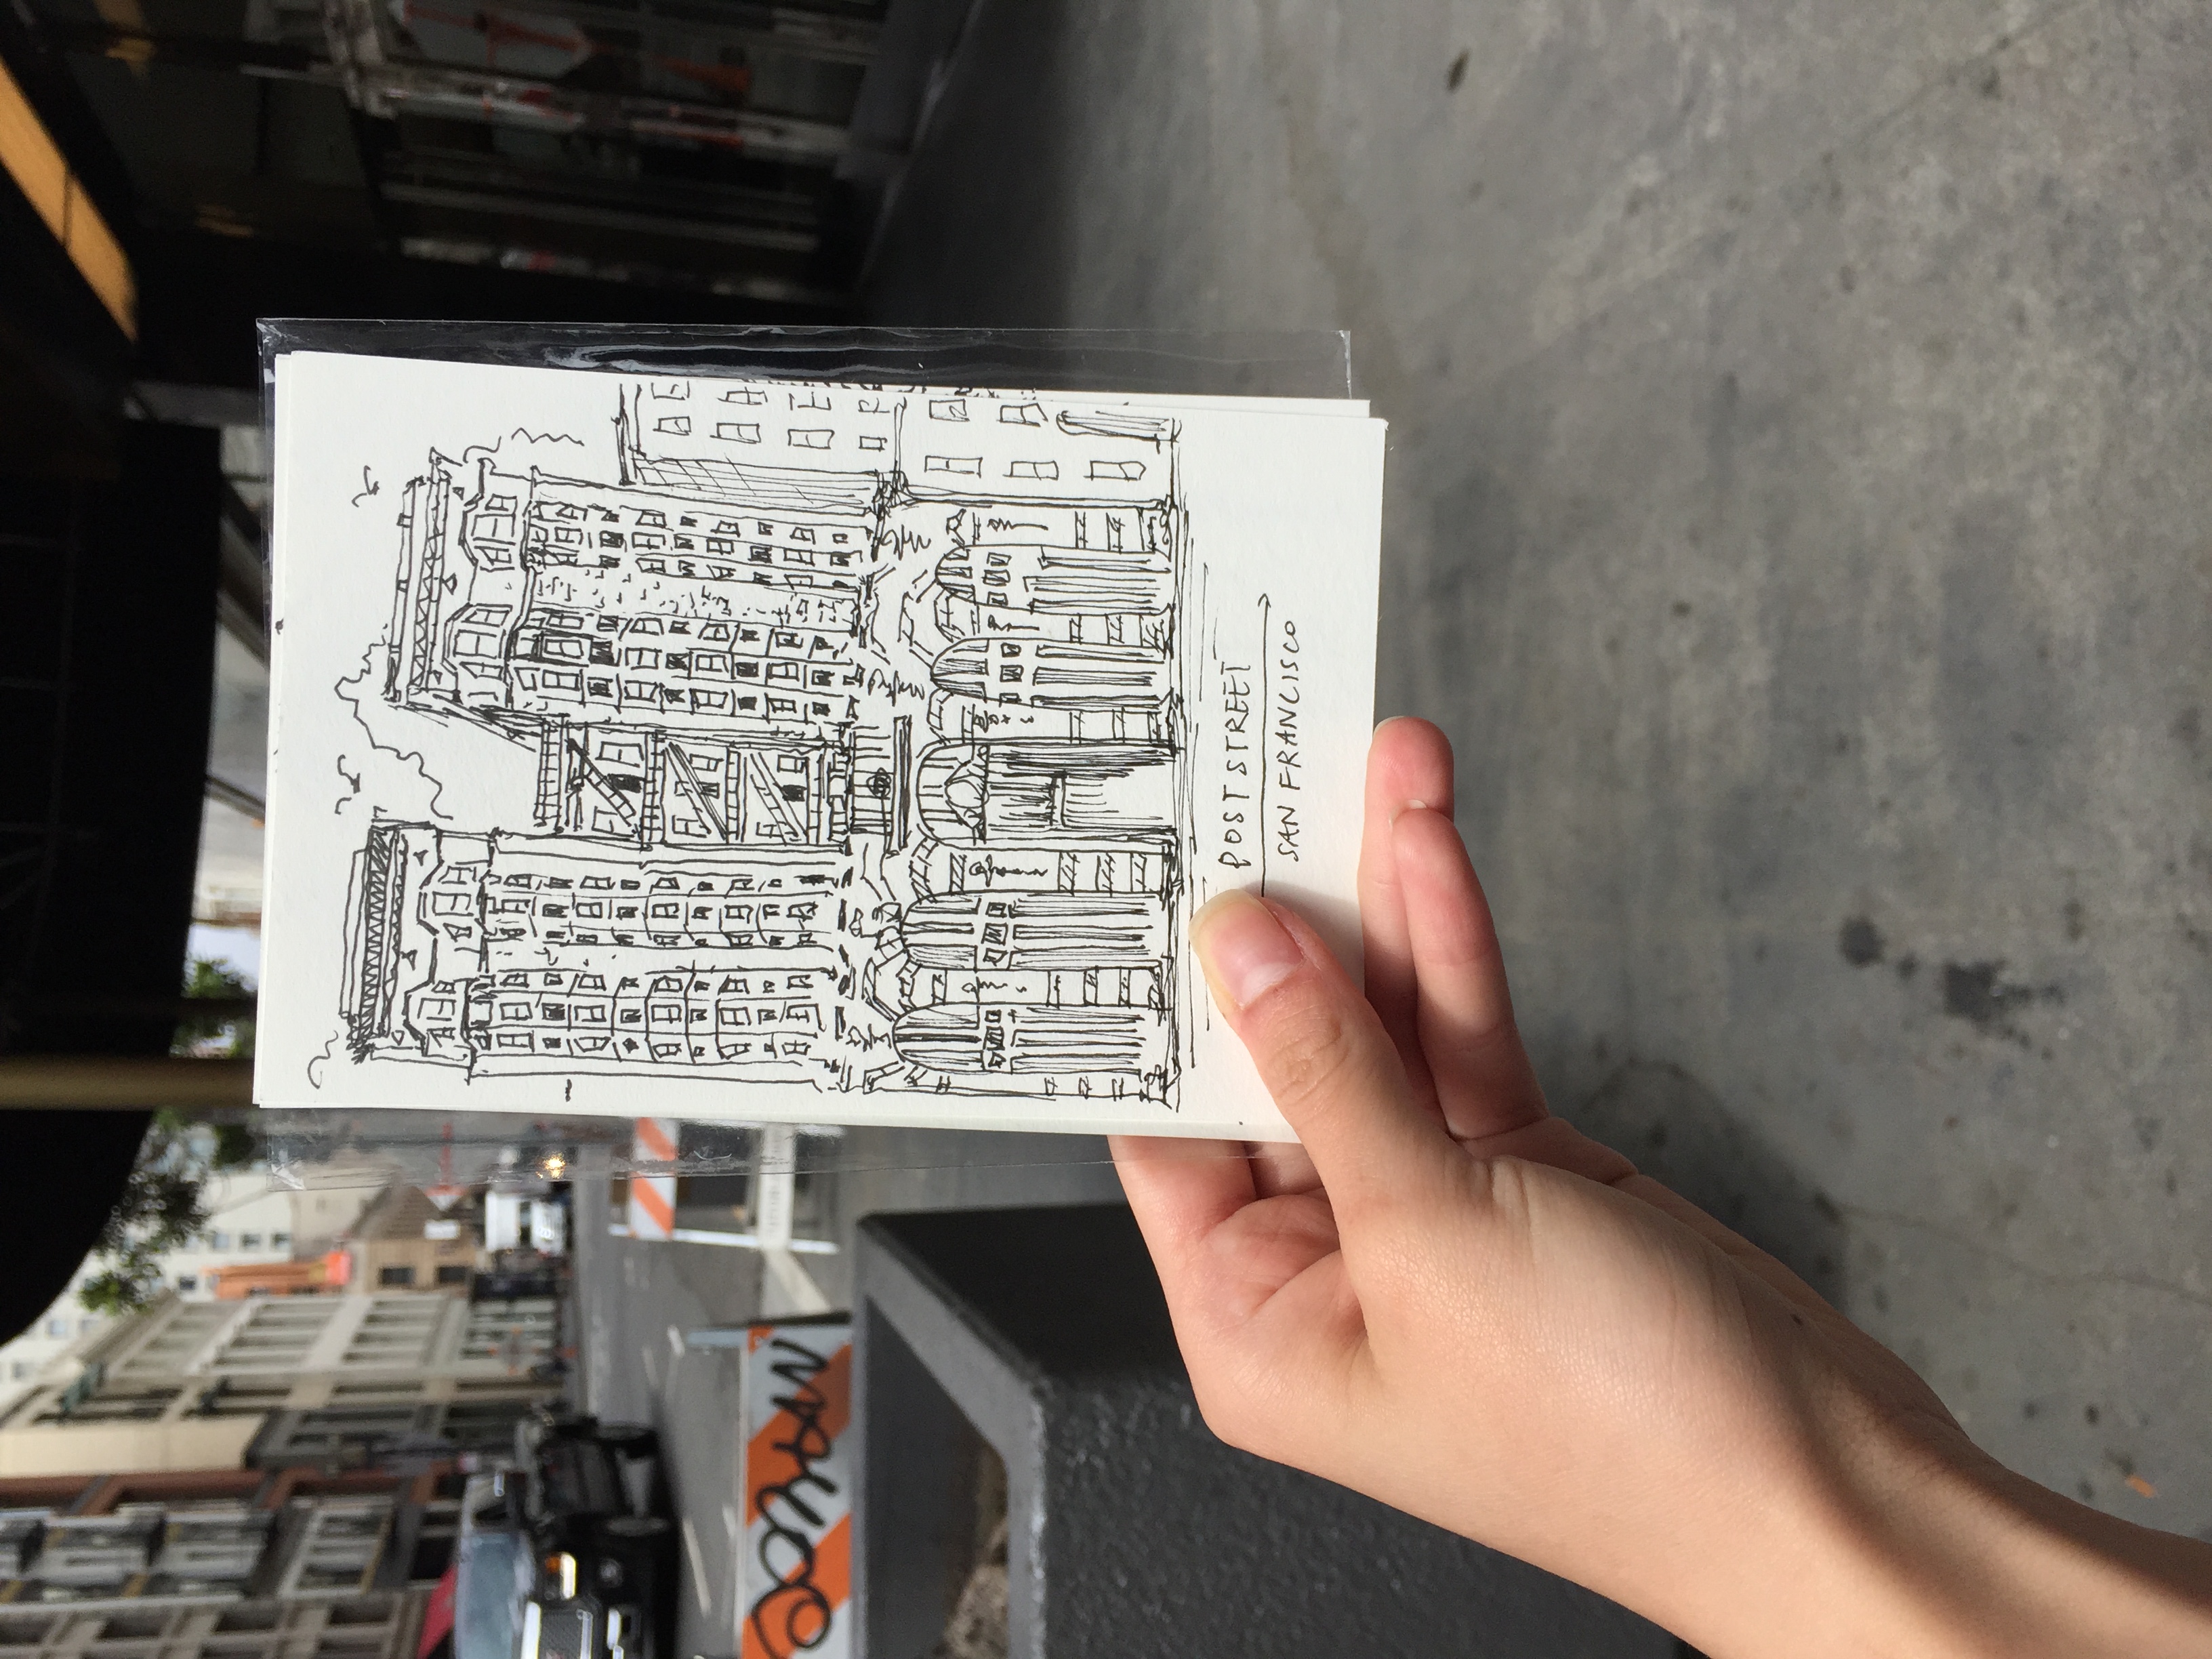 POST STREET
SAN FRANCISCO